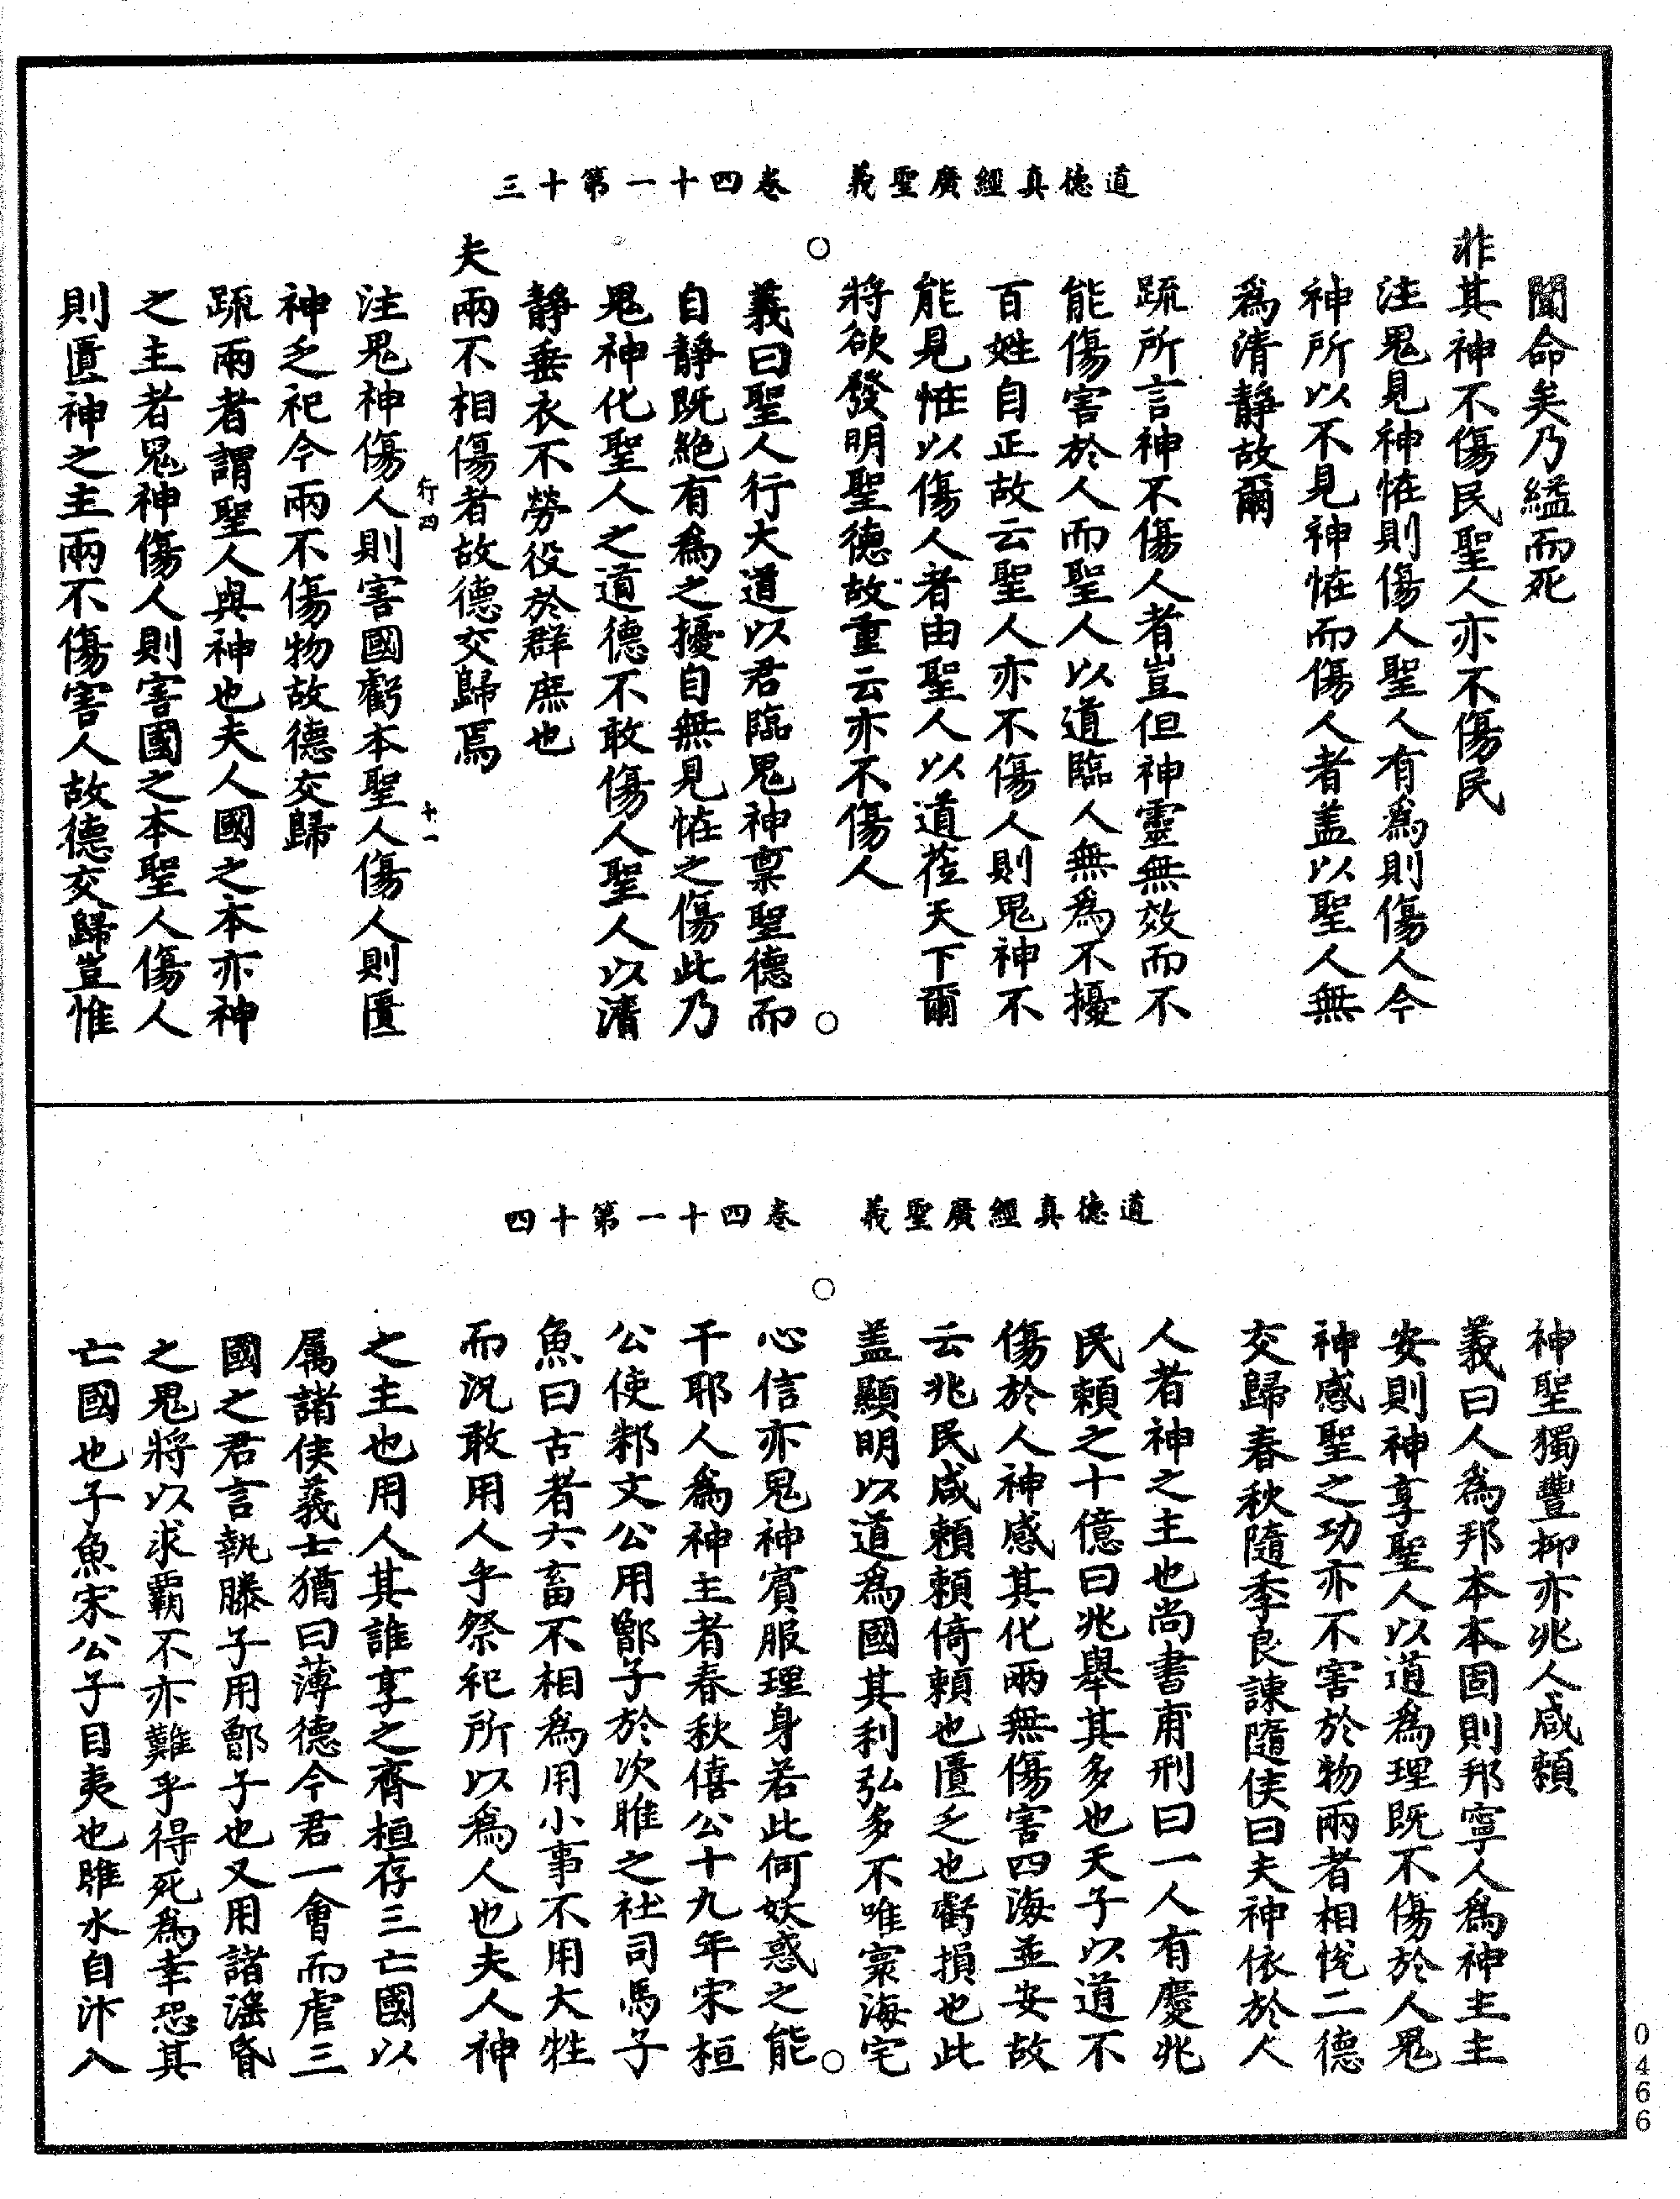 道德真經廣聖義　卷四十一第十三
聞命矣乃縊而死
非其神不傷民聖人亦不傷民
注鬼見神恠則傷人聖人有為則傷人今
神所以不見神恠而傷人者盖以聖人無
為清靜故爾
疏所言神不傷人者豈但神靈無效而不
能傷害於人而聖人以道臨人無為不擾
百姓自正故云聖人亦不傷人則鬼神不
能見恠以傷人者由聖人以道莅天下爾
將欲發明聖德故重云亦不傷人
義曰聖人行大道以君臨鬼神稟聖德而
自靜既絶有為之擾自無見恠之傷此乃
鬼神化聖人之道德不敢傷人聖人以清
靜垂衣不勞役於群庶也
夫兩不相傷者故德交歸焉
行四　十一
注鬼神傷人則害國虧本聖人傷人則匱
神乏祀今兩不傷物故德交歸
疏兩者謂聖人與神也夫人國之本亦神
之主者鬼神傷人則害國之本聖人傷人
則匱神之主兩不傷害人故德交歸豈惟
道德真經廣聖義　卷四十一第十四
神聖獨豐抑亦兆人咸賴
義曰人為邦本本固則邦寧人為神主主
安則神享聖人以道為理既不傷於人鬼
神感聖之功亦不害於物兩者相悅二德
交歸春秋隨季良諫隨侯曰夫神依於人
人者神之主也尚書甫刑曰一人有慶兆
民賴之十億曰兆舉其多也天子以道不
傷於人神感其化兩無傷害四海並安故
云兆民咸賴賴倚賴也匱乏也虧損也此
盖顯明以道為國其利弘多不唯寰海宅
心信亦鬼神賓服理身若此何妖惑之能
干耶人為神主者春秋僖公十九年宋桓
公使邾文公用鄫子於次睢之社司馬子
魚曰古者六畜不相為用小事不用大牲
而況敢用人乎祭祀所以為人也夫人神
之主也用人其誰享之齊桓存三亡國以
属諸侯義士猶曰薄德今君一會而虐三
國之君言執滕子用鄫子也又用諸淫昏
之鬼將以求霸不亦難乎得死為幸恐其
亡國也子魚宋公子目夷也睢水自汴入
0466